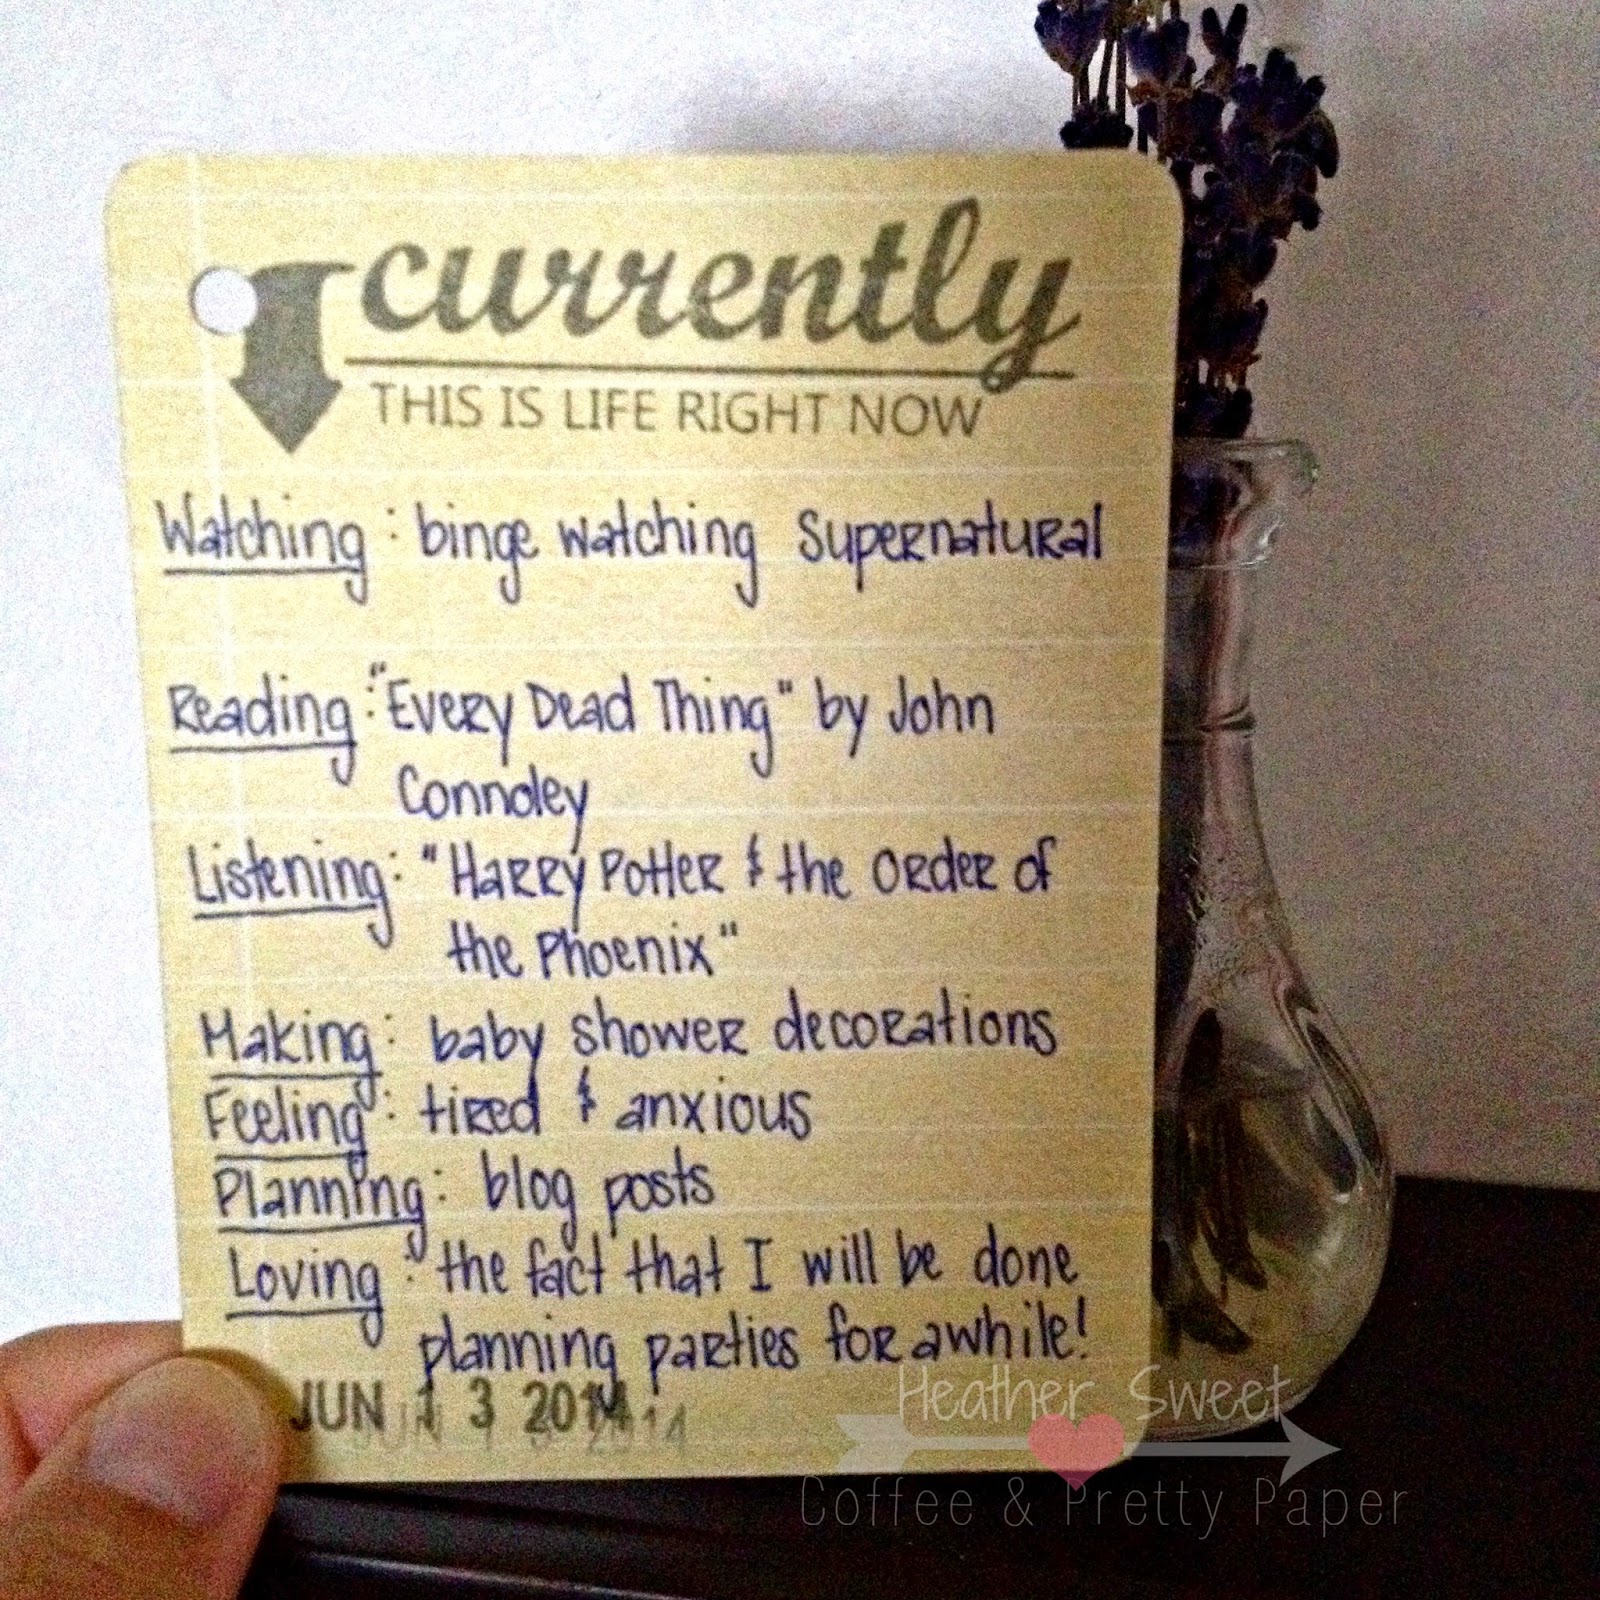 currently
THIS IS LIFE RIGHT NOW
Watching: binge watching Supernatural
Reading: "Every Dead Thing" by John
Connoley
Listening: "Harry Potter & the Order of
the Phoenix"
Making: baby shower decorations
Feeling: tired & anxious
Planning: blog posts
Loving: the fact that I will be done
planning parties for awhile!
JUN 1 3 2014
JUN 1 3 2014
Heather Sweet
Coffee & Pretty Paper